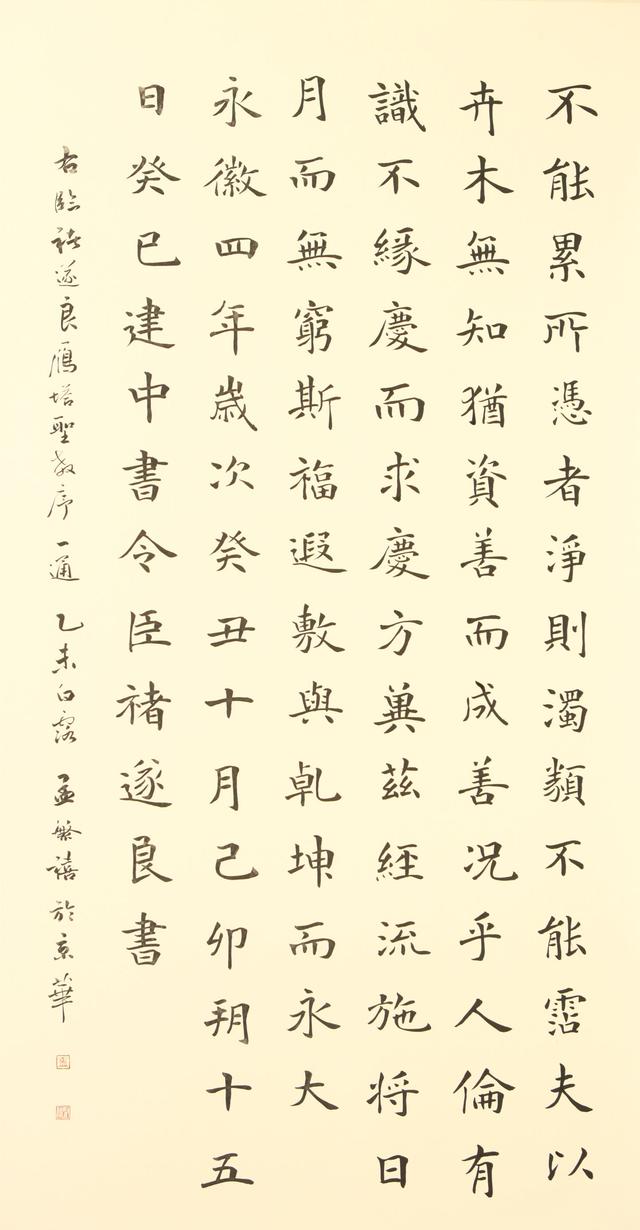 不能累所憑者淨則濁類不能霑夫以
卉木無知猶資善而成善況乎人倫有
識不緣慶而求慶方兾茲經流施将日
月而無窮斯福遐敷與乹坤而永大
永徽四年歲次癸丑十月己卯朔十五
日癸巳建中書令臣褚遂良書
右臨褚遂良雁塔聖教序一通 乙未白露 孟繁禧於京華